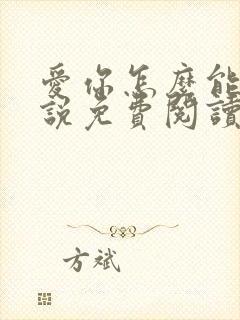 愛你怎麼能
說免費閱讀
方斌